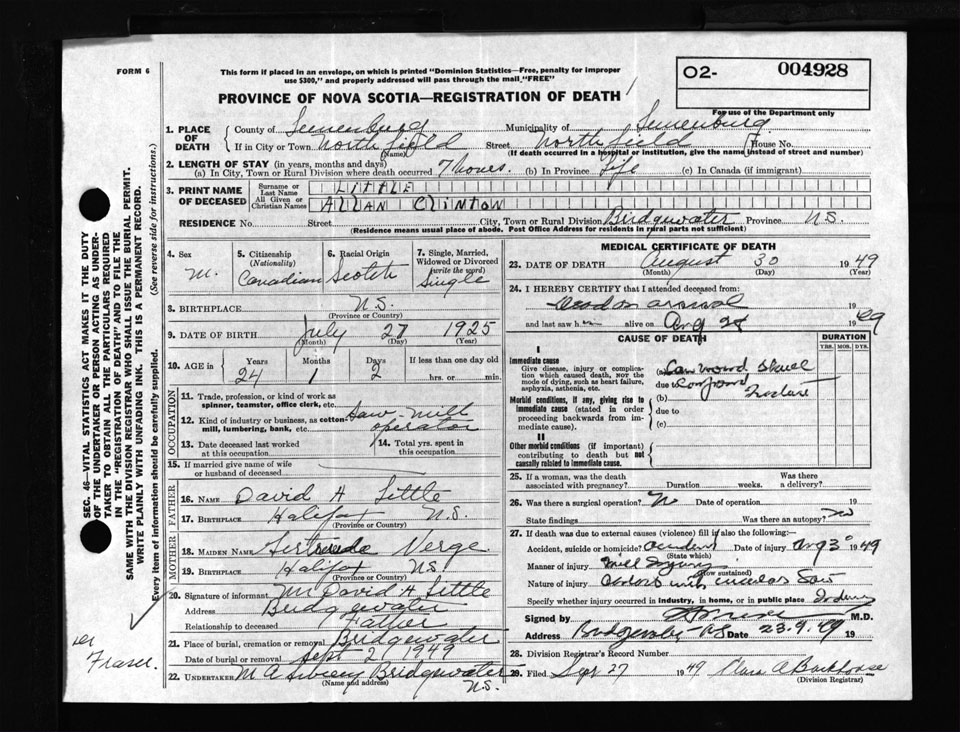 FORM 6
This form if placed in an envelope, on which is printed "Dominion Statistics—Free, penalty for improper
use $300," and properly addressed will pass through the mail "FREE"
O2- 004928
PROVINCE OF NOVA SCOTIA—REGISTRATION OF DEATH
For use of the Department only
1. PLACE OF DEATH
County of Lunenburg Municipality of Lunenburg
If in City or Town North field Street North field House No.
(Name) (If death occurred in a hospital or institution, give the name instead of street and number)
2. LENGTH OF STAY (in years, months and days)
(a) In City, Town or Rural Division where death occurred 7 hours. (b) In Province Life (c) In Canada (if immigrant)
3. PRINT NAME OF DECEASED
Surname or Last Name LITTLE
All Given or Christian Names ALLAN CLINTON
RESIDENCE No. Street City, Town or Rural Division Bridgewater Province N.S.
(Residence means usual place of abode. Post Office Address for residents in rural parts not sufficient)
4. Sex M.
5. Citizenship (Nationality) Canadian
6. Racial Origin Scotch
7. Single, Married, Widowed or Divorced (write the word) Single
8. BIRTHPLACE N.S.
(Province or Country)
9. DATE OF BIRTH July 27 1925
(Month) (Day) (Year)
10. AGE in Years Months Days If less than one day old
24 1 2 hrs. or min.
OCCUPATION
11. Trade, profession, or kind of work as spinner, teamster, office clerk, etc.
12. Kind of industry or business, as cotton-mill, lumbering, bank, etc. Saw-mill operator
13. Date deceased last worked at this occupation
14. Total yrs. spent in this occupation
15. If married give name of wife or husband of deceased
FATHER
16. NAME David H Little
17. BIRTHPLACE Halifax N.S.
(Province or Country)
MOTHER
18. MAIDEN NAME Gertrude Verge
19. BIRTHPLACE Halifax N.S.
(Province or Country)
20. Signature of informant Mr David H Little
Address Bridgewater
Relationship to deceased Father
21. Place of burial, cremation or removal Bridgewater
Date of burial or removal Sept 2 1949
22. UNDERTAKER Bridgewater N.S.
(Name and address)
MEDICAL CERTIFICATE OF DEATH
23. DATE OF DEATH August 30 1949
(Month) (Day) (Year)
24. I HEREBY CERTIFY that I attended deceased from:
dead on arrival 19
and last saw h alive on Aug 1949
CAUSE OF DEATH DURATION
YRS. MOS. DYS.
I
Immediate cause
Give disease, injury or complication which caused death, NOT the mode of dying, such as heart failure, asphyxia, asthenia, etc.
(a) Saw wound skull
due to Compound
(b) Fracture
Morbid conditions, if any, giving rise to immediate cause (stated in order proceeding backwards from immediate cause).
due to
(c)
II
Other morbid conditions (if important) contributing to death but not causally related to immediate cause.
25. If a woman, was the death associated with pregnancy? Duration weeks. Was there a delivery?
26. Was there a surgical operation? No Date of operation 19
State findings Was there an autopsy? No
27. If death was due to external causes (violence) fill in also the following:
Accident, suicide or homicide? accident Date of injury Aug 30 1949
(State which)
Manner of injury Mill Injury
(How sustained)
Nature of injury with circular saw
Specify whether injury occurred in industry, in home, or in public place Industry
Signed by M.D.
Address Bridgewater N.S. Date 23.9.49 19
28. Division Registrar's Record Number
29. Filed Sep 27 1949 Clara A Backhouse
(Division Registrar)
SEC. 46—VITAL STATISTICS ACT MAKES IT THE DUTY
OF THE UNDERTAKER OR PERSON ACTING AS UNDER-
TAKER TO OBTAIN ALL THE PARTICULARS REQUIRED
IN THE "REGISTRATION OF DEATH" AND TO FILE THE
SAME WITH THE DIVISION REGISTRAR WHO SHALL ISSUE THE BURIAL PERMIT.
WRITE PLAINLY WITH UNFADING INK. THIS IS A PERMANENT RECORD.
Every item of information should be carefully supplied. (See reverse side for instructions.)
Fraser.